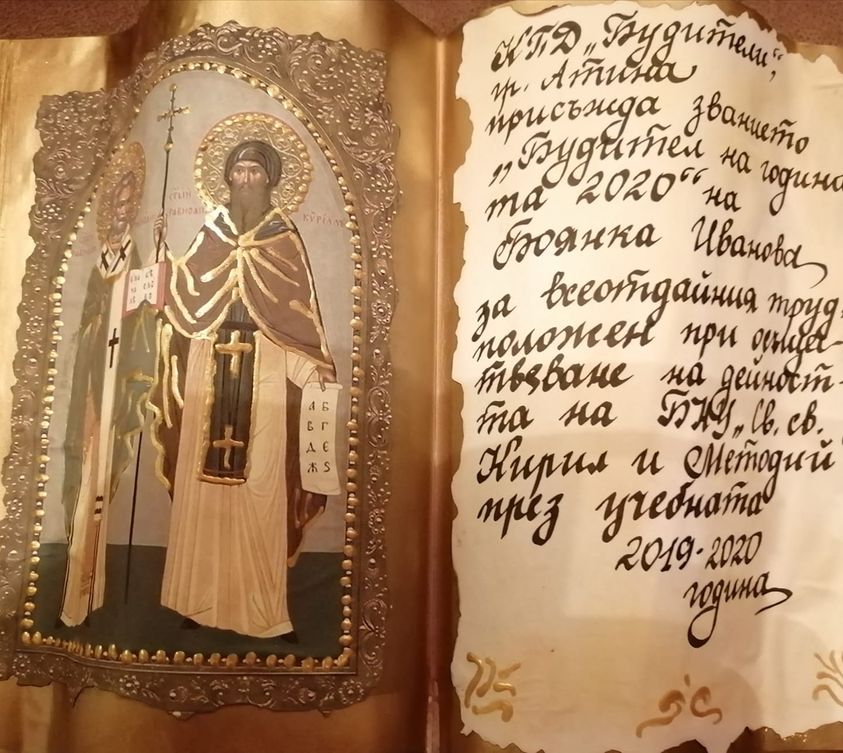 КУРΙЛЛ
СЛО
А Б
В Г
Д Є
Ж Ѕ
КПД „Будители“,
гр. Атина
присъжда званието
„Будител на година
та 2020“ на
Боянка Иванова
за всеотдайния труд,
положен при осъщес-
твяване на дейност-
та на БНУ „Св. св.
Кирил и Методий“
през учебната
2019-2020
година